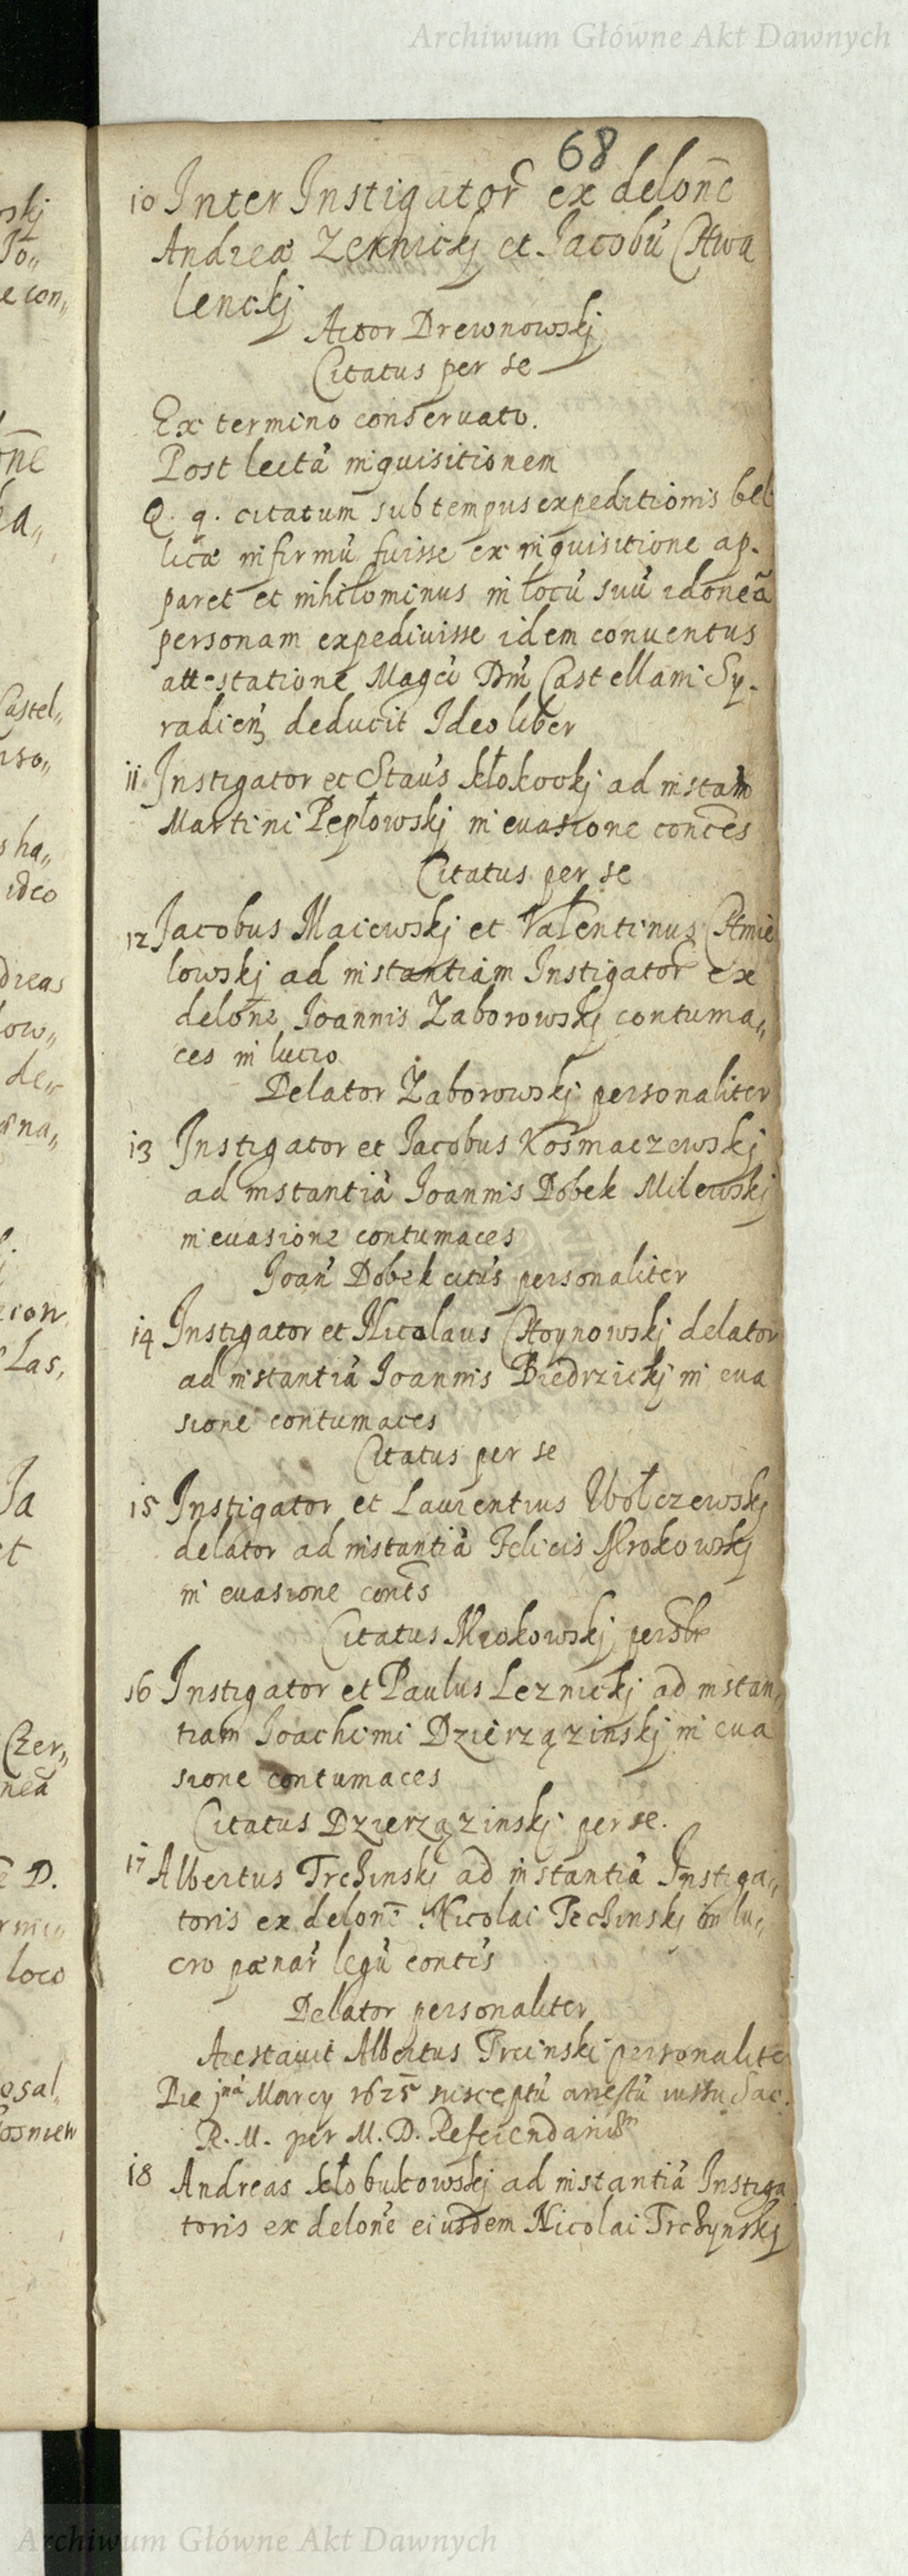 Archiwum Główne Akt Dawnych
68
10 Inter Instigator ex delone
Andreæ Zernickj et Jacobu Chwa
lenckj
Actor Drewnowskj
Citatus per se
Ex termino conseruato.
Post lectā inquisitionem
Q. q. citatum sub tempus expeditionis bel
licæ infirmū fuisse ex inquisitione ap-
paret et nihilominus in locū suū idoneā
personam expediuisse idem conuentus
attestatione Magci Dni Castellani Sy-
radien deducit Ideo liber
11 Instigator et Staus Kłokockj ad instam
Martini Pepłowskj in euasione contes
Citatus per se
12 Jacobus Maiewskj et Valentinus Chmie
lowskj ad instantiam Instigator ex
delone Joannis Zaborowskj contuma„
ces in lucro
Delator Zaborowskj personaliter
13 Instigator et Jacobus Kosmaczewskj
ad instantiā Joannis Dobek Milewskj
in euasione contumaces
Joan Dobek citus personaliter
14 Instigator et Nicolaus Choynowskj delator
ad instantiā Joannis Biedrzickj in eua
sione contumaces
Citatus per se
15 Instigator et Laurentius Wołczewskj
delator ad instantiā Felicis Mrokowskj
in euasione contes
Citatus Mrokowskj persolr
16 Instigator et Paulus Leznickj ad instan„
tiam Joachimi Dzierzązinskj in eua
sione contumaces
Citatus Dzierzązinskj per se.
17 Albertus Trchinskj ad instantiā Instiga„
toris ex delone Nicolai Trchinskj in lu„
cro pænar legū contis
Delator personaliter
Arestauit Albertus Trcinski personaliter
Die jma Marcy 1625 susceptū arrestū iussu Sac.
R. M. per M. D. Referendariu
18 Andreas Kłobukowskj ad instantiā Instiga
toris ex delone eiusdem Nicolai Trchynskj
Archiwum Główne Akt Dawnych